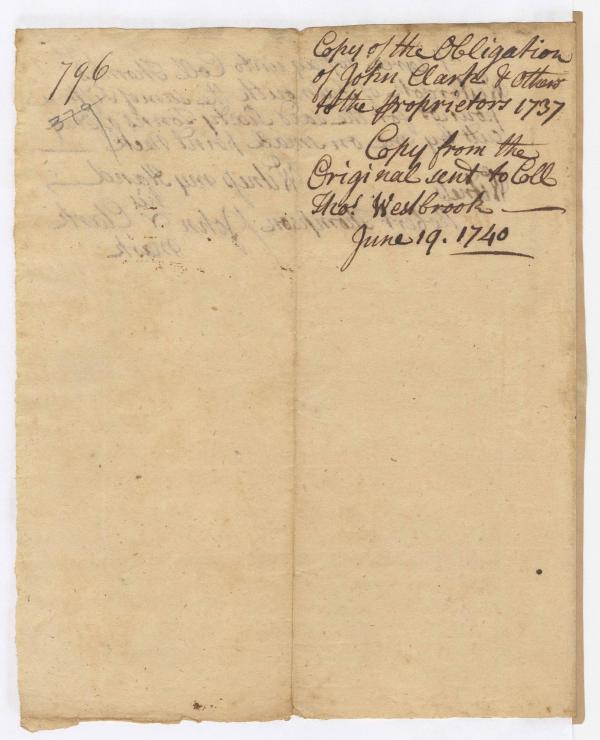 796
379
Copy of the Obligation
of John Clark & Others
to the proprietors 1737
Copy from the
Original sent to Coll
Thos. Westbrook
June 19. 1740